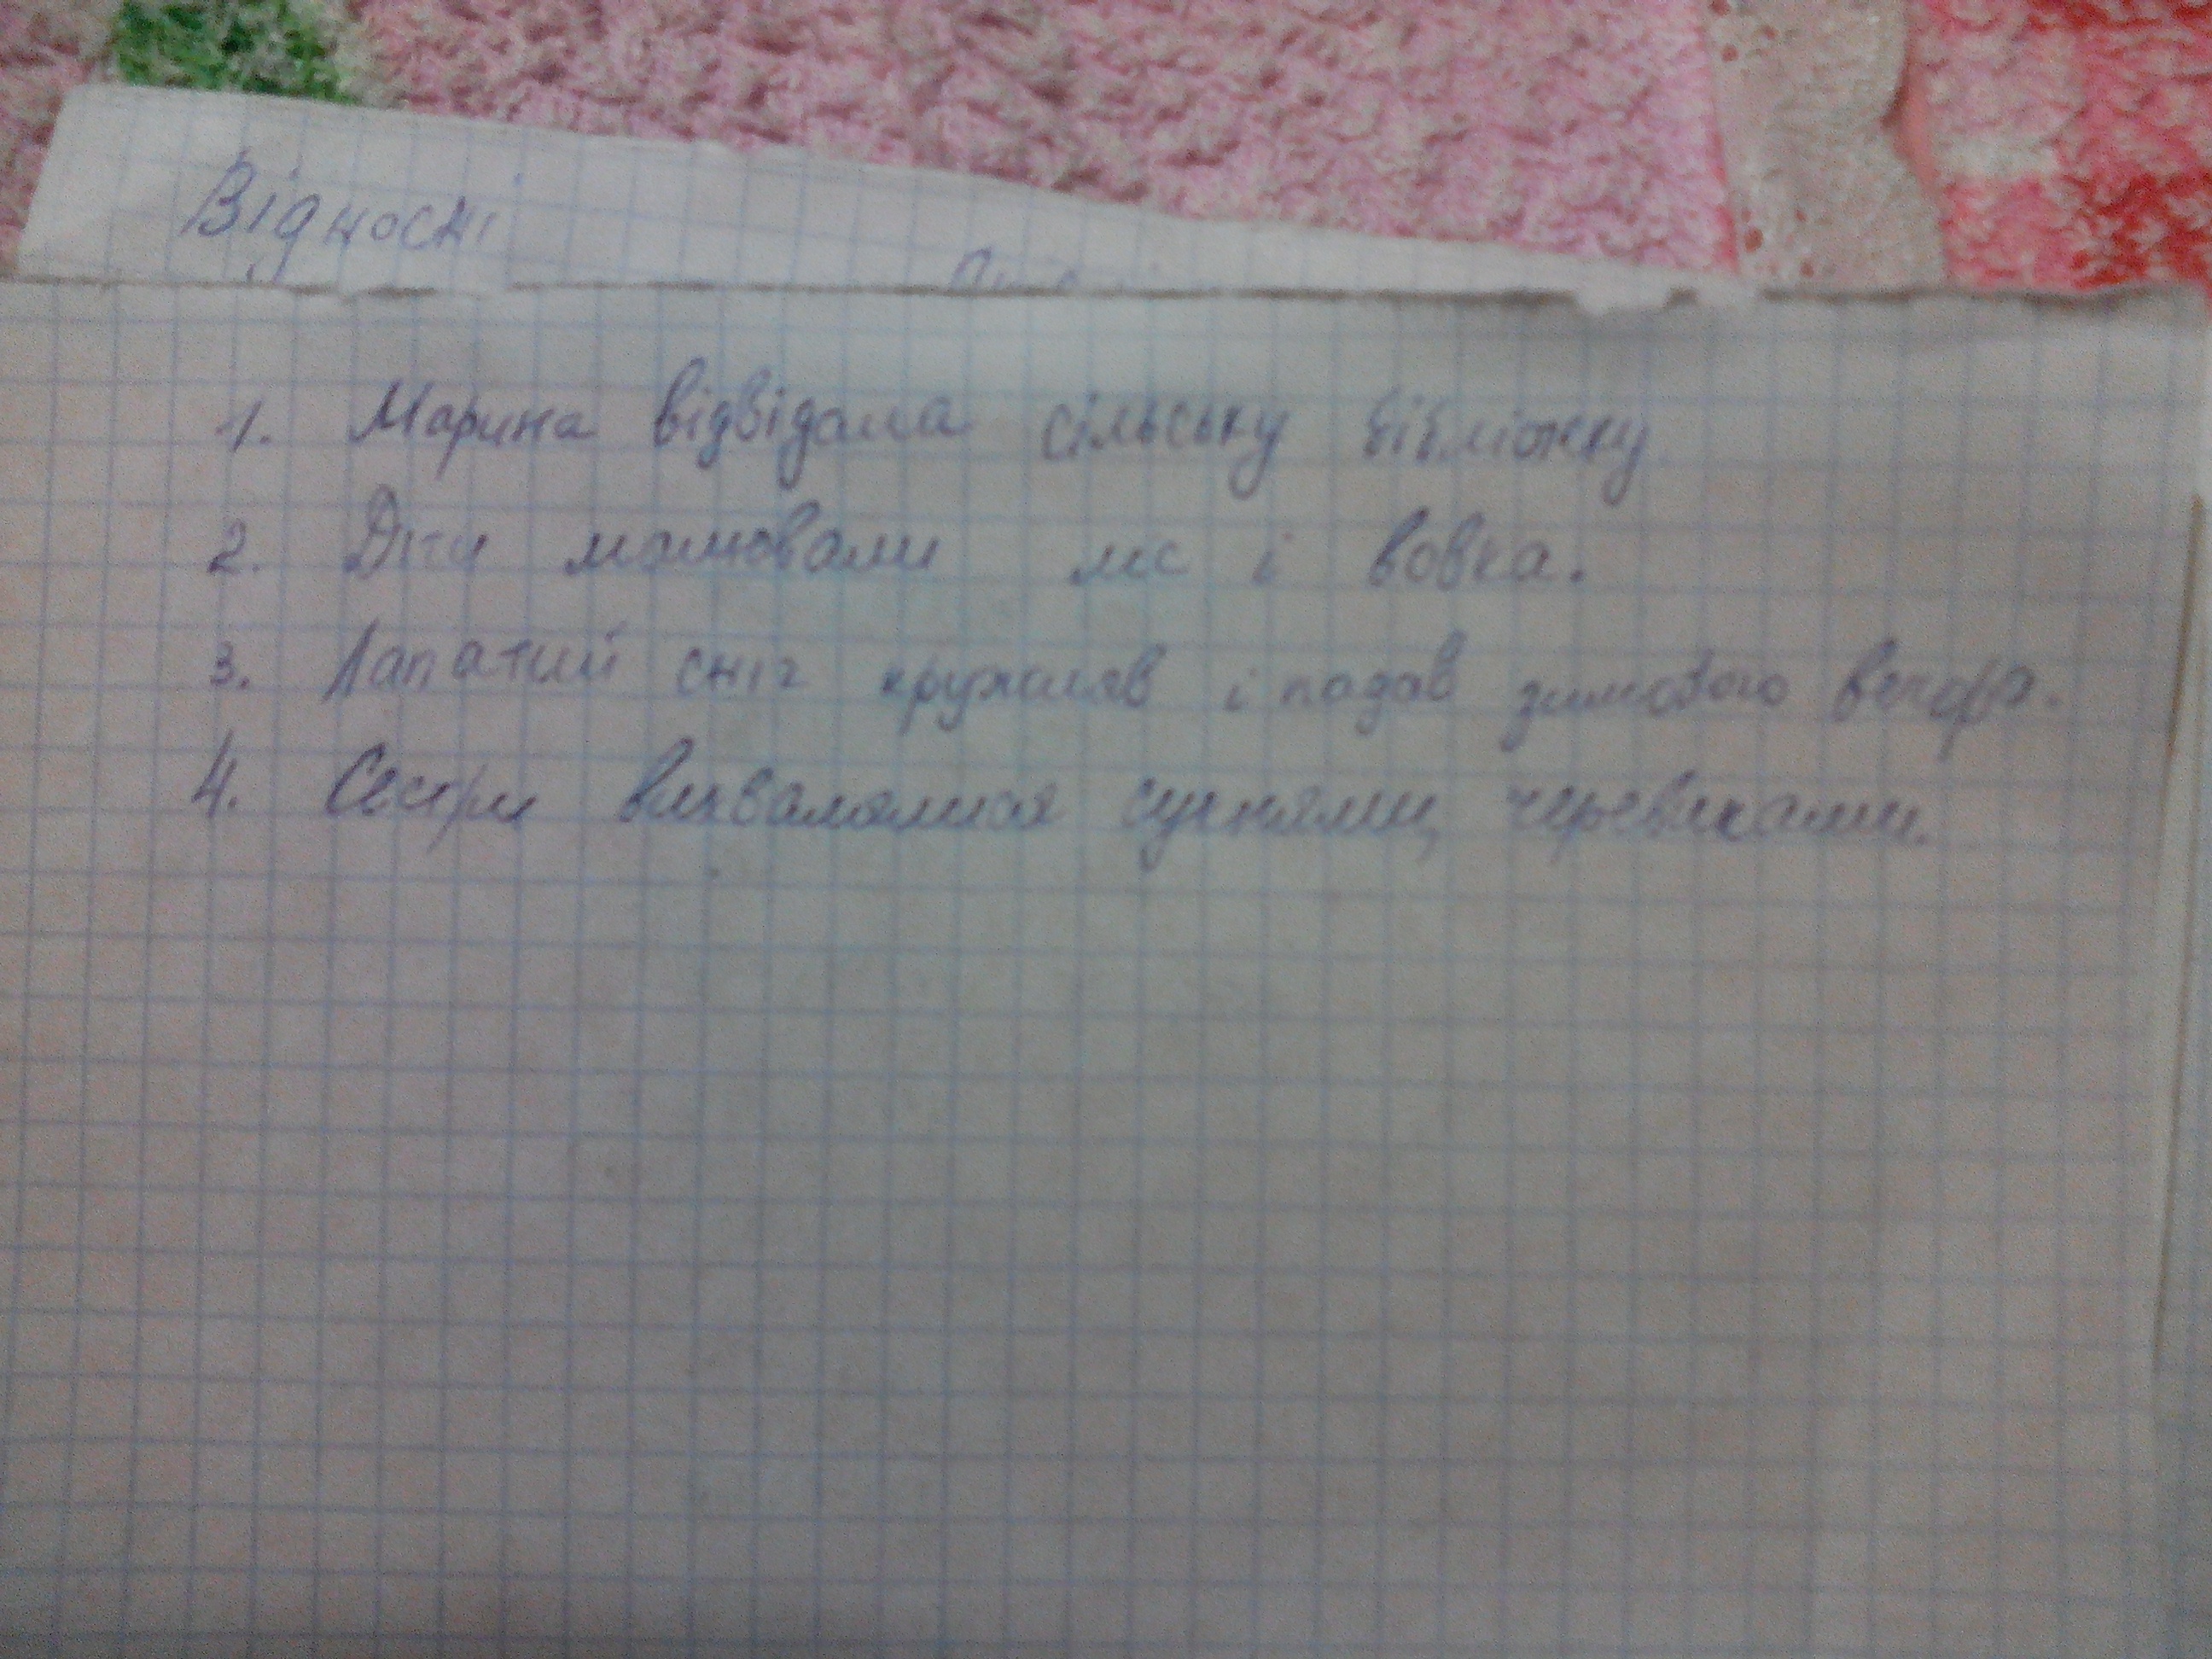 Відносні
1. Марина відвідала сільську бібліотеку
2. Діти малювали лис і вовка.
3. Лапатий сніг кружляв і падав зимового вечора.
4. Сестри вихвалялися сукнями, черевиками.